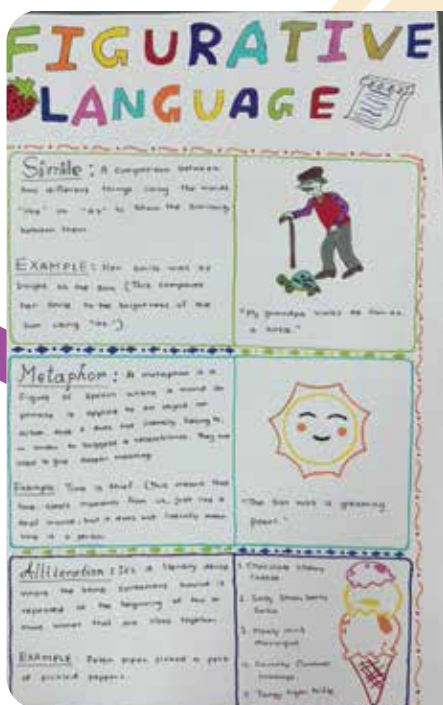 FIGURATIVE
LANGUAGE
Simile : A comparison between
two different things using the words
"like" or "as" to show the similarity
between them.
EXAMPLE : Her smile was as
bright as the sun (This compares
her smile to the brightness of the
sun using "as.")
"My grandpa walks as slow as
a turtle."
Metaphor : A metaphor is a
figure of speech where a word or
phrase is applied to an object or
action that it does not literally belong to,
in order to suggest a resemblance. They are
used to give deeper meaning.
Example: Time is thief (This means that
time steals moments from us, just like a
thief would, but it does not literally mean
time is a person.
"The Sun was a gleaming
pearl."
Alliteration : It's a literary device
where the same consonant sound is
repeated at the beginning of two or
more words that are close together.
EXAMPLE Peter piper picked a peck
of pickled peppers.
1. Chocolate cherry
2.
3. mint
4.
5. Tangy